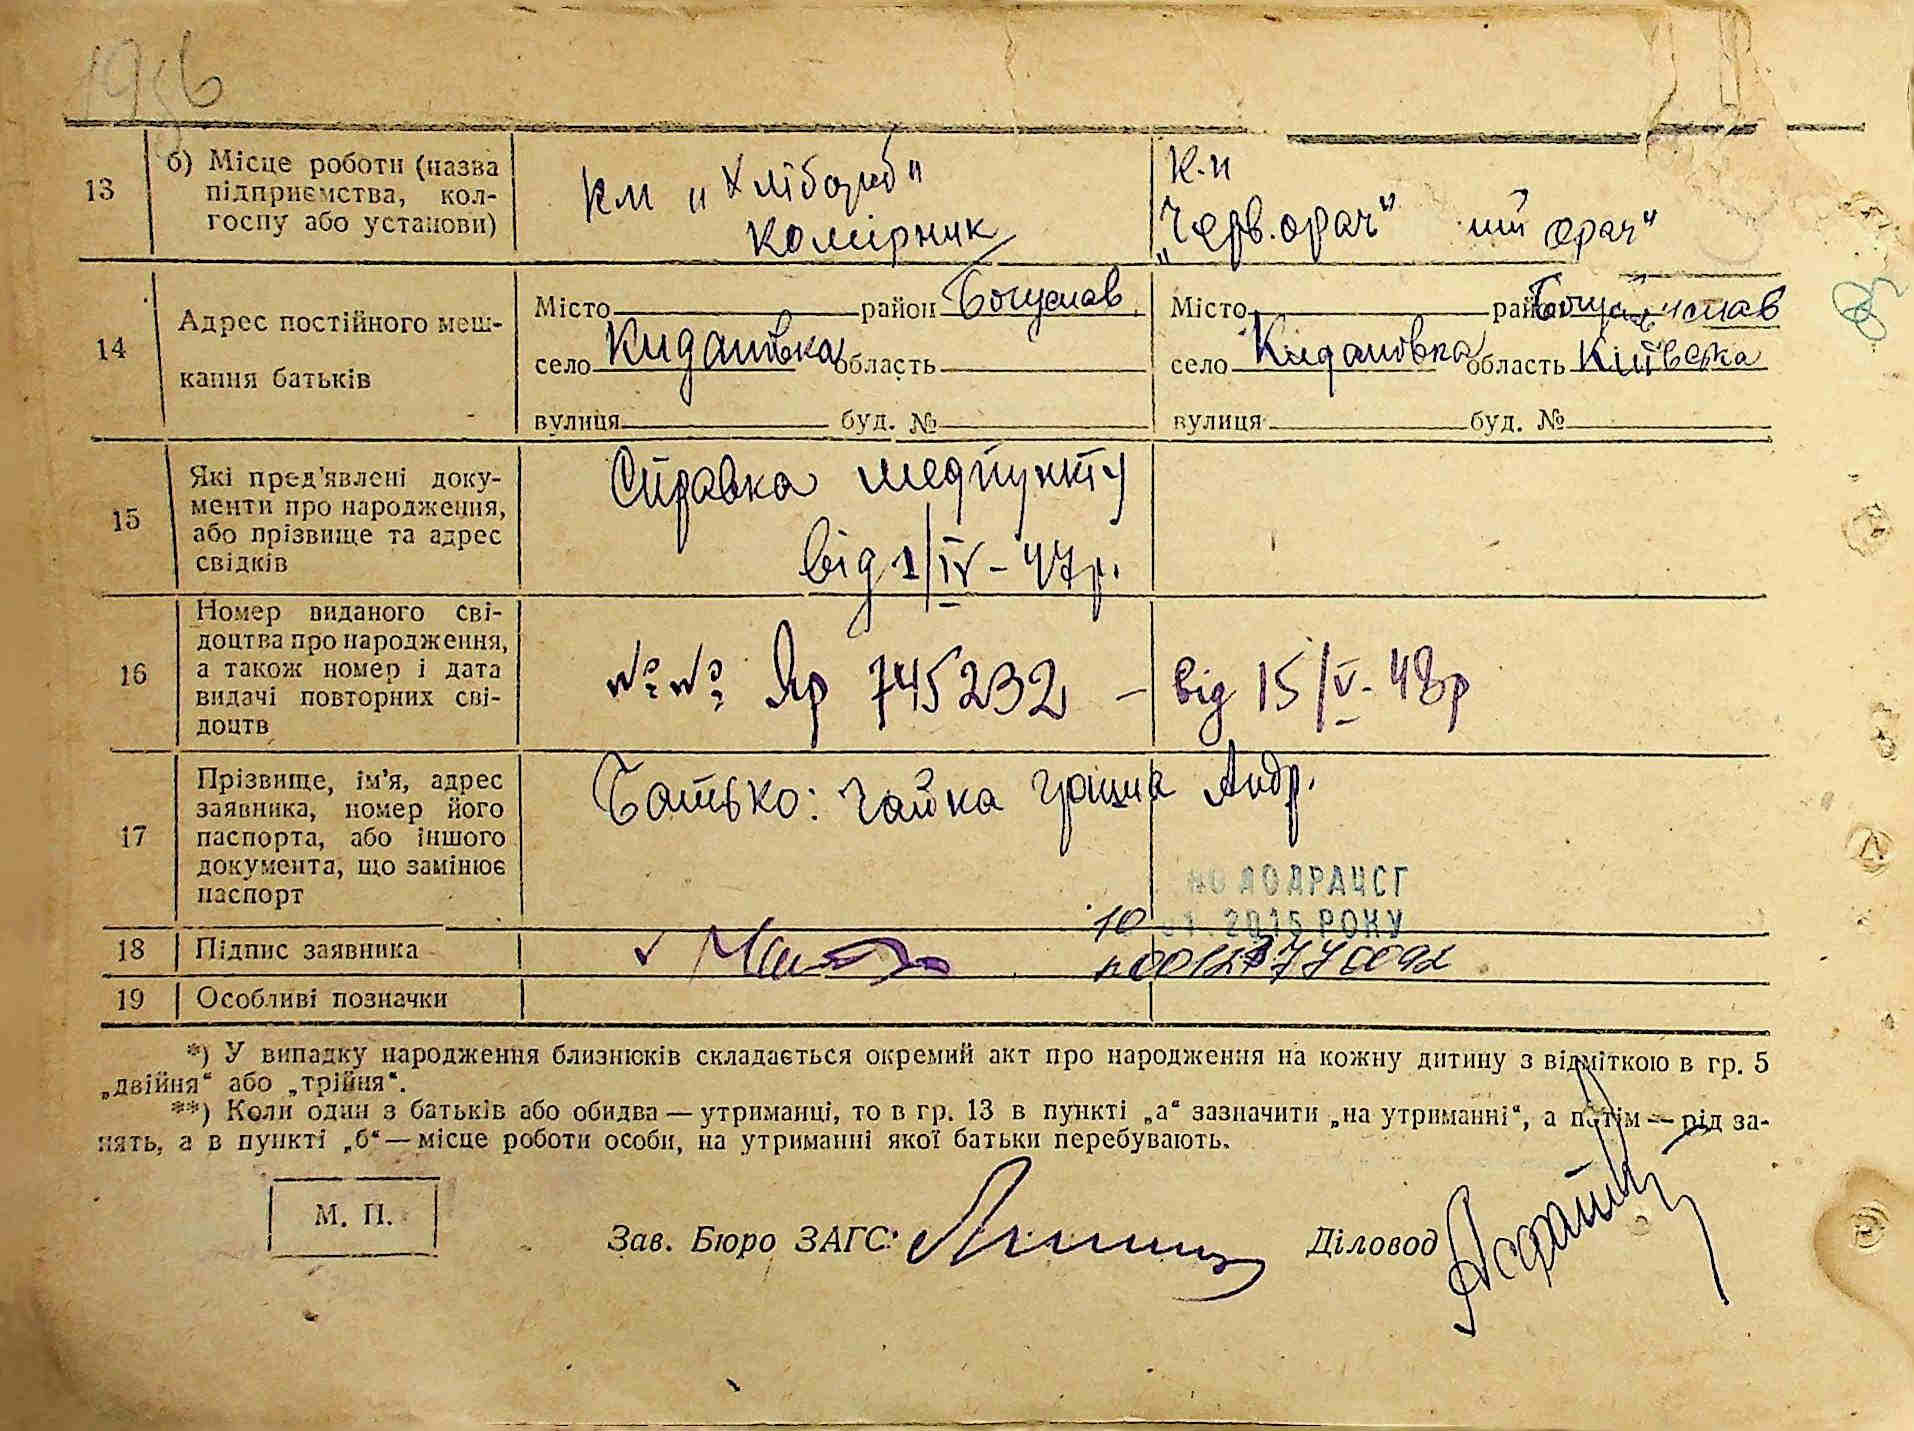 1956
13
б) Місце роботи (назва
підприємства, кол-
госпу або установи)
Км „Хлібороб"
комірник
К.п
„Черв. орач" ий орач"
14
Адрес постійного меш-
кання батьків
Місто район Богуслав
село Кидановка область
вулиця буд. №
Місто район Богуслав
село Кидановка область Київська
вулиця буд. №
15
Які пред'явлені доку-
менти про народження,
або прізвище та адрес
свідків
Справка медпункту
від 1/IV - 47р.
16
Номер виданого сві-
доцтва про народження,
а також номер і дата
видачі повторних сві-
доцтв
№ № Яр 745232 – від 15/V - 48р
17
Прізвище, ім'я, адрес
заявника, номер його
паспорта, або іншого
документа, що замінює
паспорт
Батько: Чайка Андр.
ДО ДРАЦСГ
10 01. 2015 РОКУ
18
Підпис заявника
19
Особливі позначки
*) У випадку народження близнюків складається окремий акт про народження на кожну дитину з відміткою в гр. 5
„двійня“ або „трійня“.
**) Коли один з батьків або обидва — утриманці, то в гр. 13 в пункті „а“ зазначити „на утриманні“, а потім — рід за-
нять, а в пункті „б“ — місце роботи особи, на утриманні якої батьки перебувають.
М. П.
Зав. Бюро ЗАГС:
Діловод